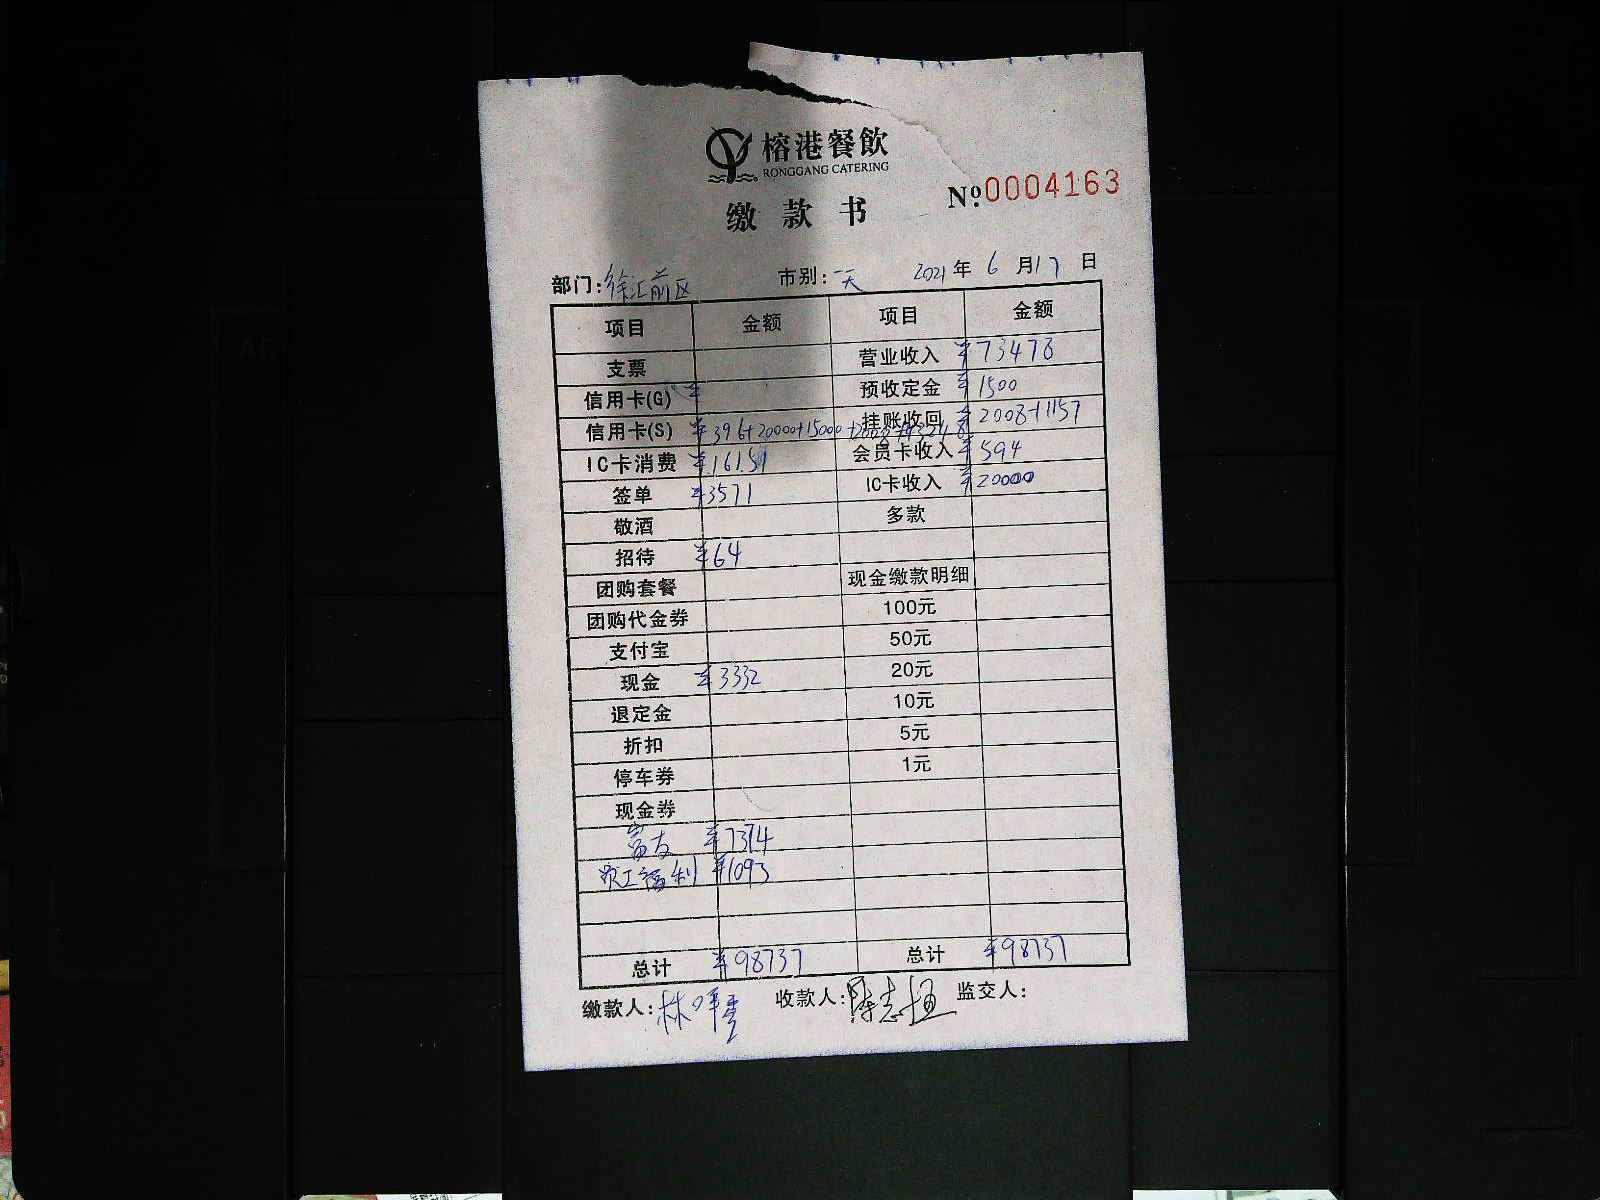 榕港餐飲
RONGGANG CATERING
缴款书
Nº:0004163
部门:徐汇前区 市别:一天 2021年6月17日
项目 金额 项目 金额
支票 营业收入 ¥73478
信用卡(G) ¥ 预收定金 ¥1500
信用卡(S) ¥396+20000+15000+2008+ 挂账收回 ¥2008+1157
IC卡消费 会员卡收入 ¥594
签单 ¥3571 IC卡收入 ¥20000
敬酒 多款
招待 ¥64
团购套餐 现金缴款明细
团购代金券 100元
支付宝 50元
现金 ¥3332 20元
退定金 10元
折扣 5元
停车券 1元
现金券
富友 ¥7374
职工福利 ¥1093
总计 ¥98737 总计 ¥98737
缴款人:林 收款人:陈志 监交人: